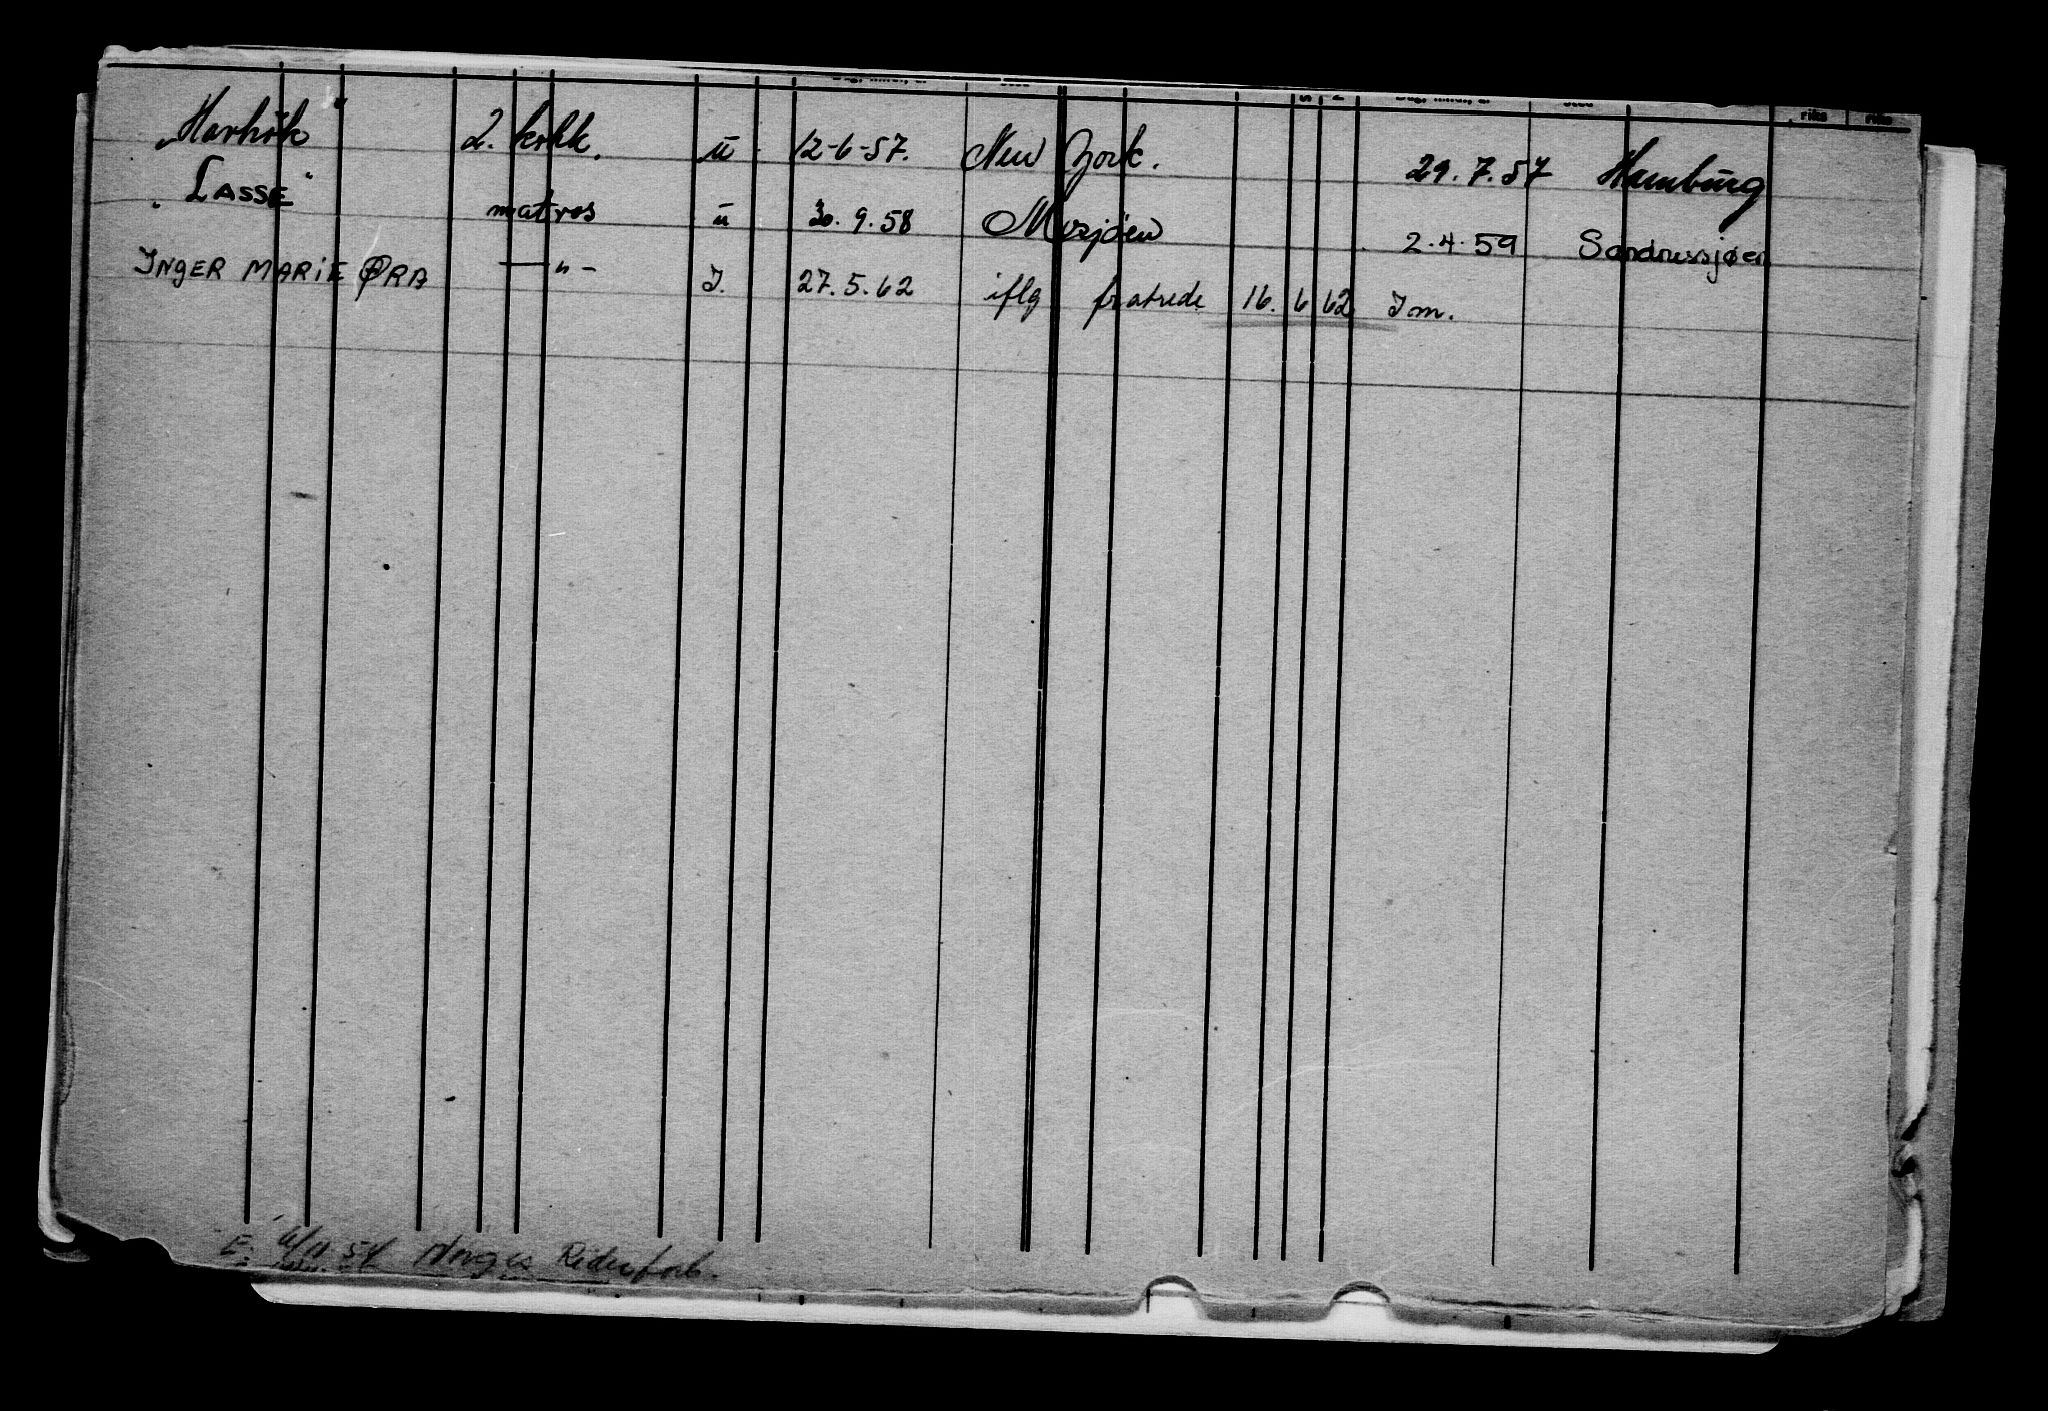 „Havhök" 2. kokk. ü 12-6-57. New York. 29.7.57 Hamburg
„LASSE" matros ü 30.9.58 Mosjöen 2.4.59 Sandnessjøen
INGER MARIE ØRA —"— J. 27.5.62 iflg fratrede 16. 6 62 Jm.
E: 6/11 54 Norges Rederforb.